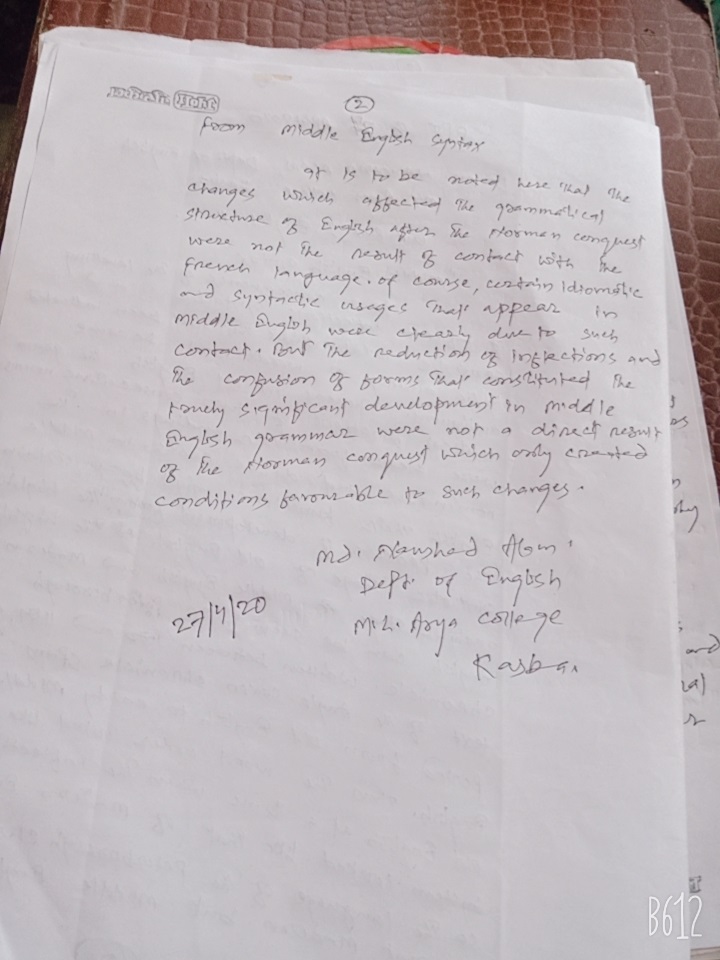 2
from Middle English Syntax
It is to be noted here that the
changes which affected the grammatical
structure of English after the Norman conquest
were not the result of contact with the
French language. Of course, certain idiomatic
and syntactic usages that appear in
Middle English were clearly due to such
contact. But the reduction of inflections and
the confusion of forms that constituted the
truely significant development in Middle
English grammar were not a direct result
of the Norman conquest which only created
conditions favourable to such changes.
Md. Naushad Alam.
Deptt. of English
27/4/20
M.L. Arya College
Kasba.
and
B612